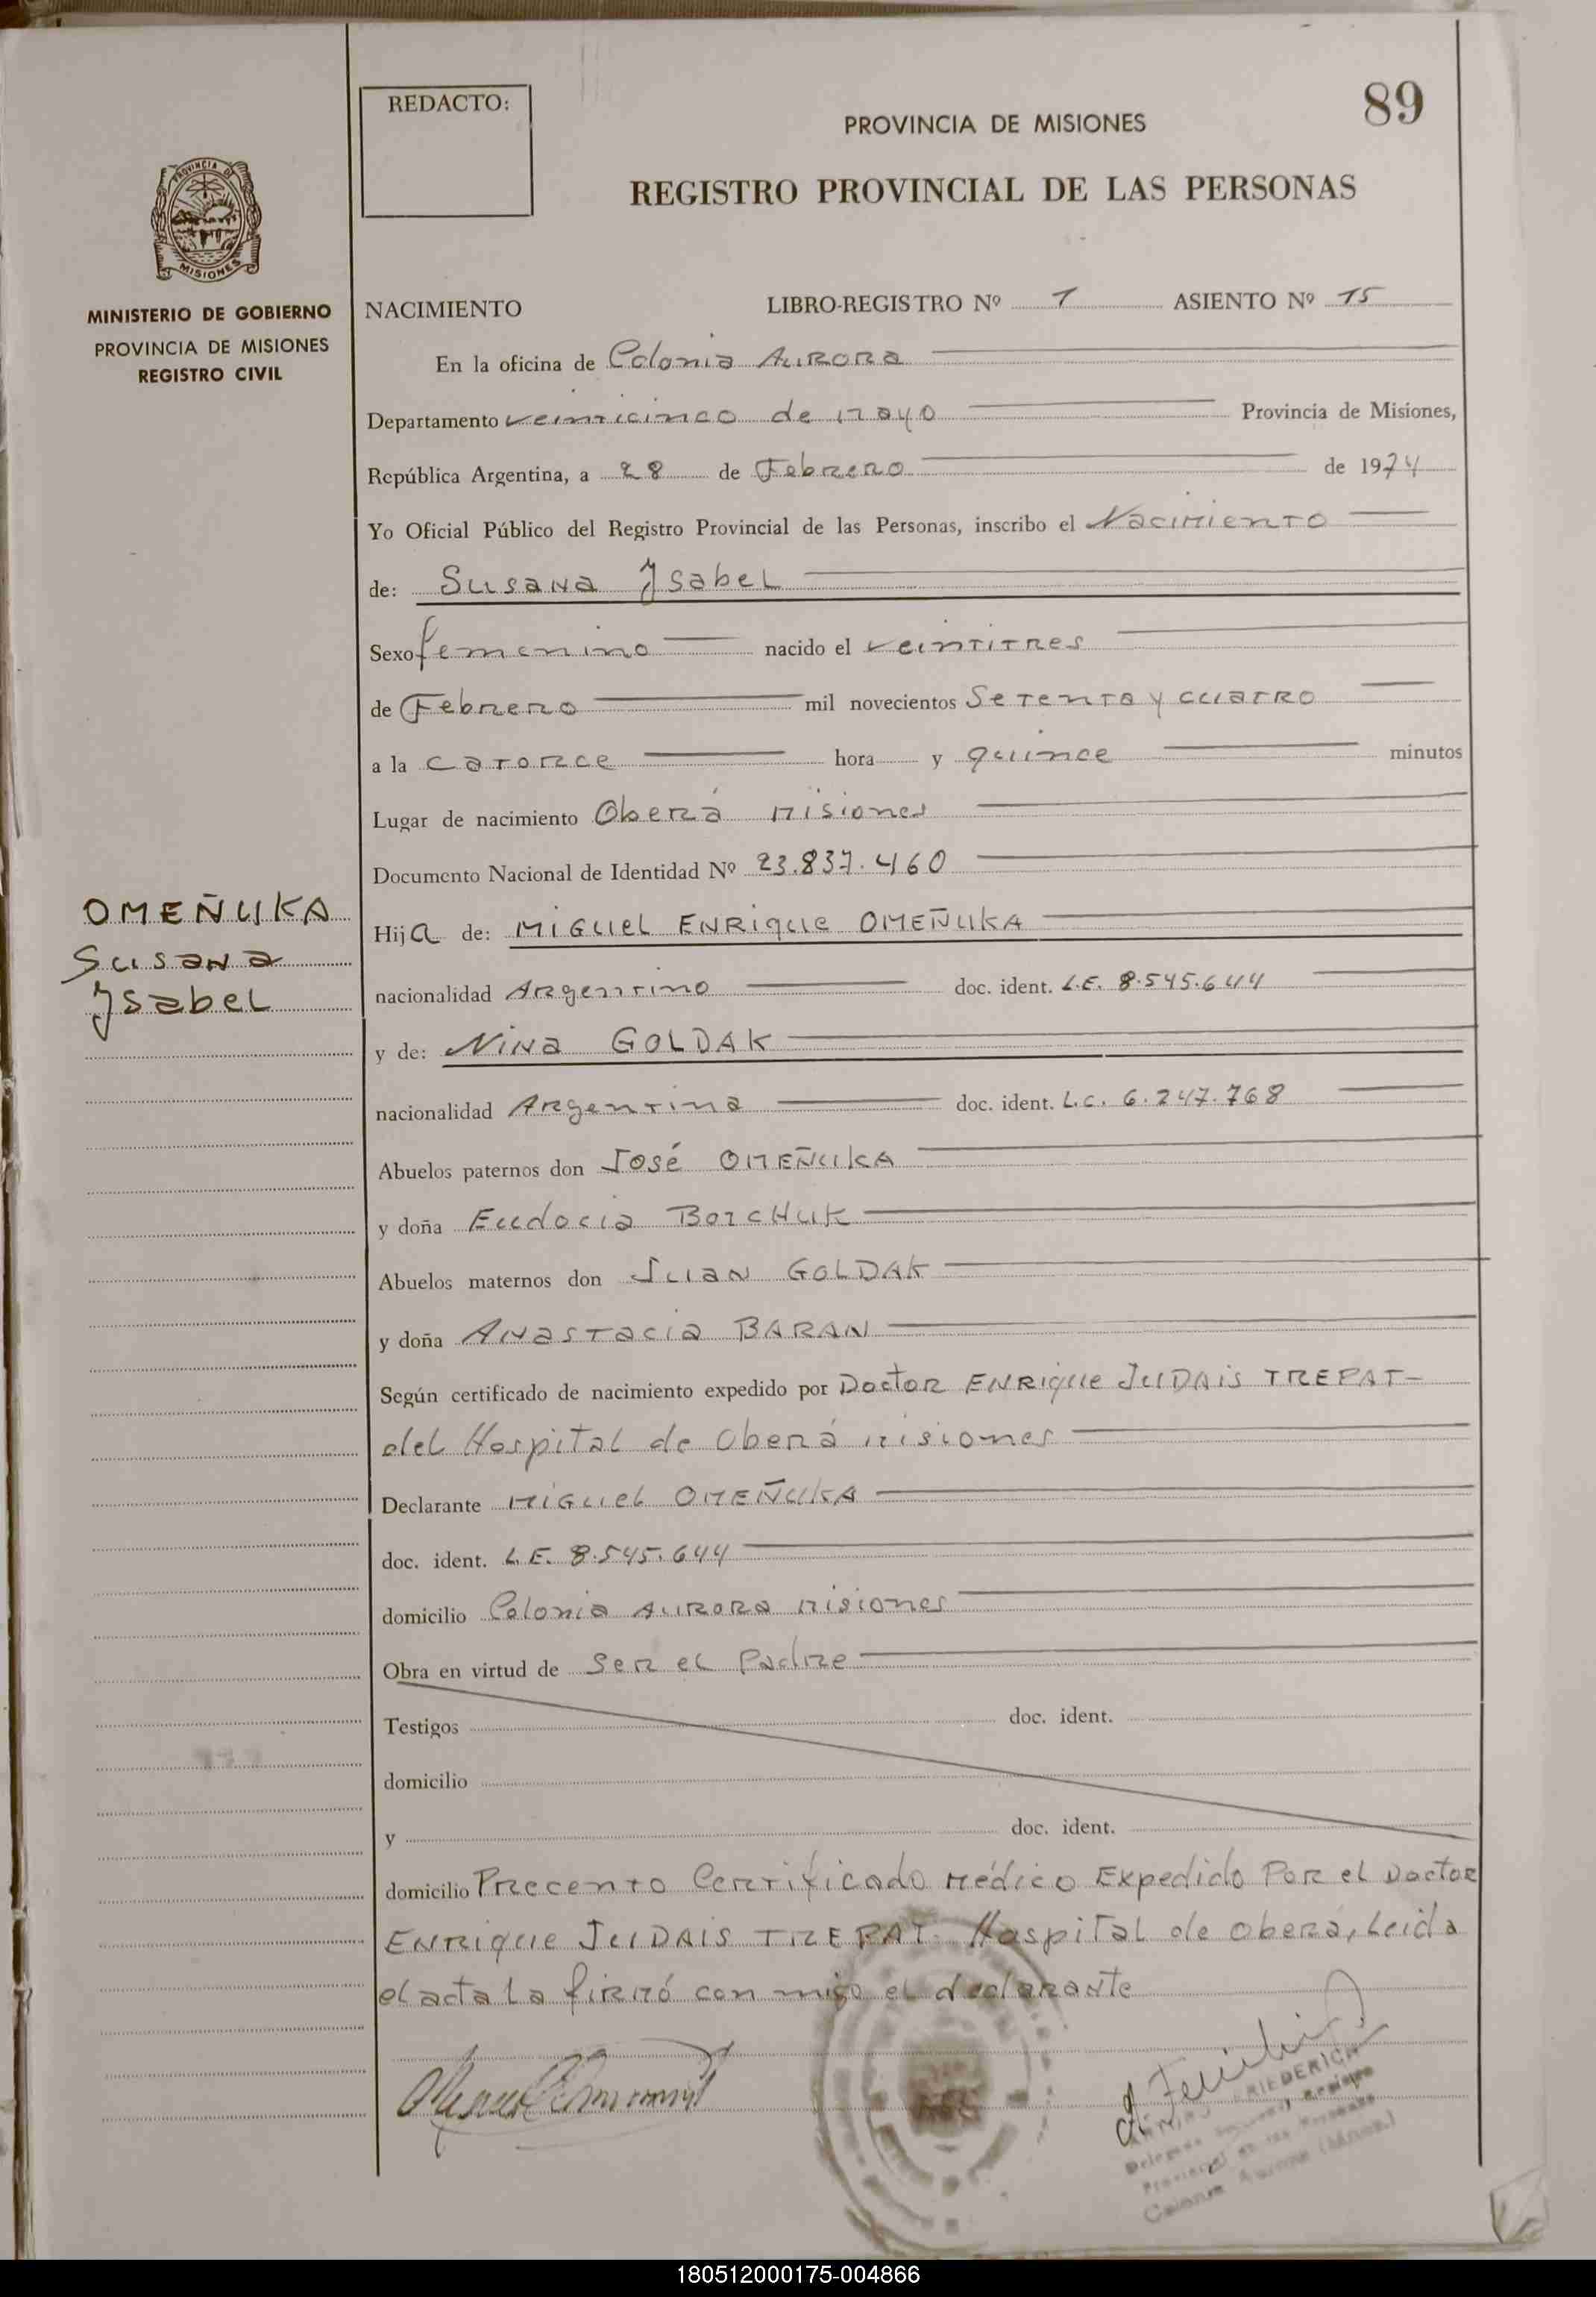 REDACTO:
89
PROVINCIA DE MISIONES
REGISTRO PROVINCIAL DE LAS PERSONAS
PROVINCIA DE
MISIONES
MINISTERIO DE GOBIERNO
PROVINCIA DE MISIONES
REGISTRO CIVIL
NACIMIENTO LIBRO-REGISTRO Nº 1 ASIENTO Nº 15
En la oficina de Colonia Aurora
Departamento veinticinco de mayo Provincia de Misiones,
República Argentina, a 28 de Febrero de 1974
Yo Oficial Público del Registro Provincial de las Personas, inscribo el Nacimiento
de: Susana Ysabel
Sexo femenino nacido el veintitres
de Febrero mil novecientos Setenta y cuatro
a la catorce hora y quince minutos
Lugar de nacimiento Oberá misiones
Documento Nacional de Identidad Nº 23.837.460
OMEÑUKA
Susana
Ysabel
Hija de: MiGUEL ENRique OMEÑUKA
nacionalidad Argentino doc. ident. L.E. 8.545.644
y de: Nina GOLDAK
nacionalidad Argentina doc. ident. L.C. 6.247.768
Abuelos paternos don José OMEÑUKA
y doña Eudocia BorcHuK
Abuelos maternos don Juan GOLDAK
y doña Anastacia BARAN
Según certificado de nacimiento expedido por Doctor ENRique JUDAis TREPAT-
del Hospital de Oberá misiones
Declarante MiGuel OMEÑUKA
doc. ident. L.E. 8.545.644
domicilio Colonia Aurora misiones
Obra en virtud de Ser el Padre
Testigos doc. ident.
domicilio
y doc. ident.
domicilio Precento Certificado Médico Expedido Por el Doctor
ENRique JUDAis TREPAT Hospital de Oberá, Leida
el acta la firmó con migo el declarante
Colonia Aurora
180512000175-004866